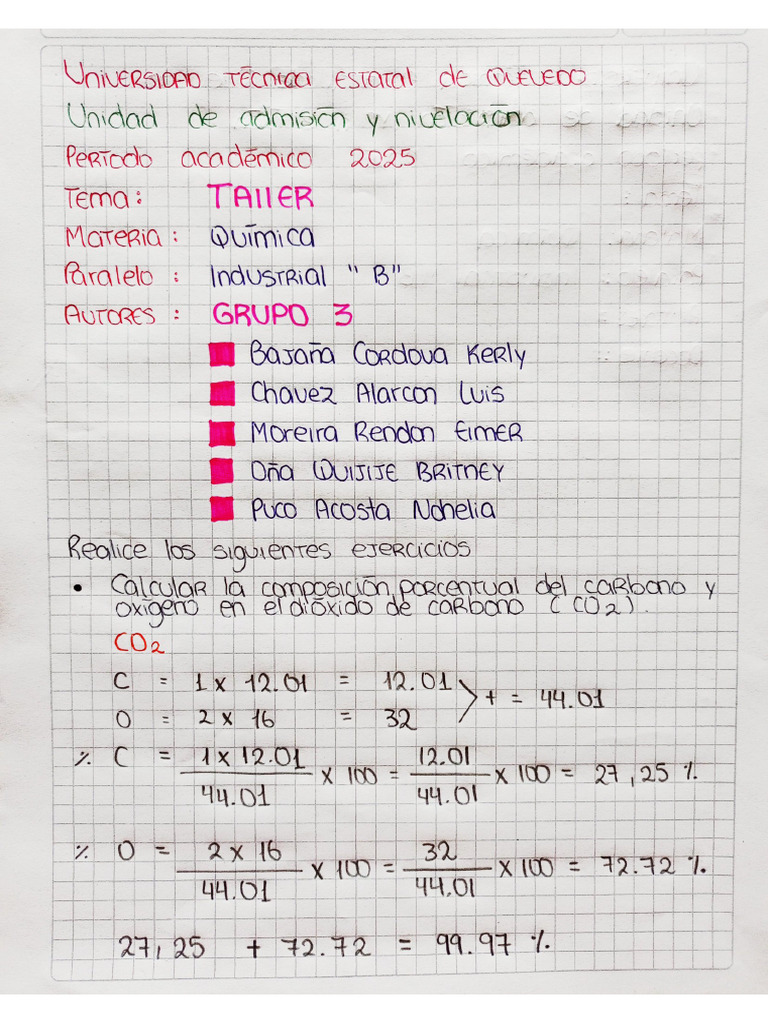 Universidad Técnica Estatal de Quevedo
Unidad de admisión y nivelación
Período académico 2025
Tema: Taller
Materia: Química
Paralelo: Industrial "B"
Autores: GRUPO 3
Bajaña Cordova Kerly
Chavez Alarcon Luis
Moreira Rendon Eimer
Oña Quijije Britney
Puco Acosta Nohelia
Realice los siguientes ejercicios
• Calcular la composición porcentual del carbono y
oxígeno en el dióxido de carbono (CO2).
CO2
C = 1 x 12.01 = 12.01
O = 2 x 16 = 32 > + = 44.01
% C = 1 x 12.01 / 44.01 x 100 = 12.01 / 44.01 x 100 = 27,25 %
% O = 2 x 16 / 44.01 x 100 = 32 / 44.01 x 100 = 72.72 %
27,25 + 72.72 = 99.97 %